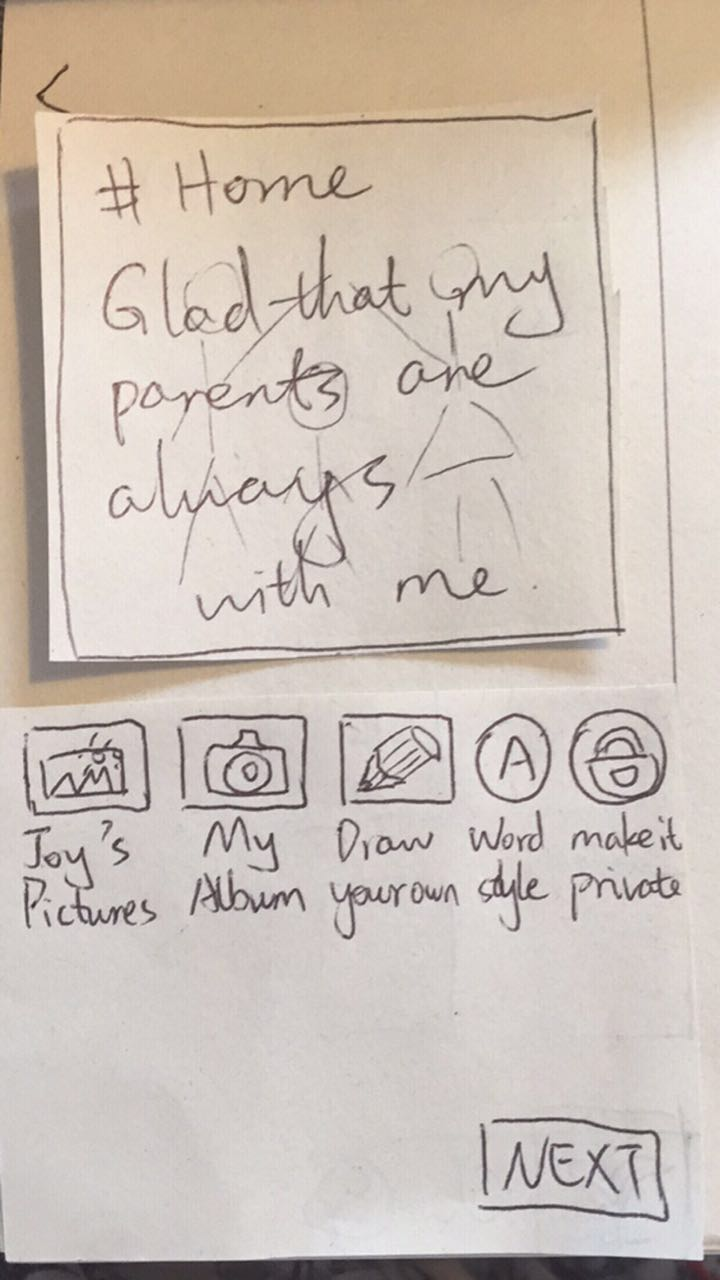 <
# Home
Glad that my
parents are
always
with me.
A
Joy's Pictures
My Album
Draw your own
Word style
make it private
NEXT